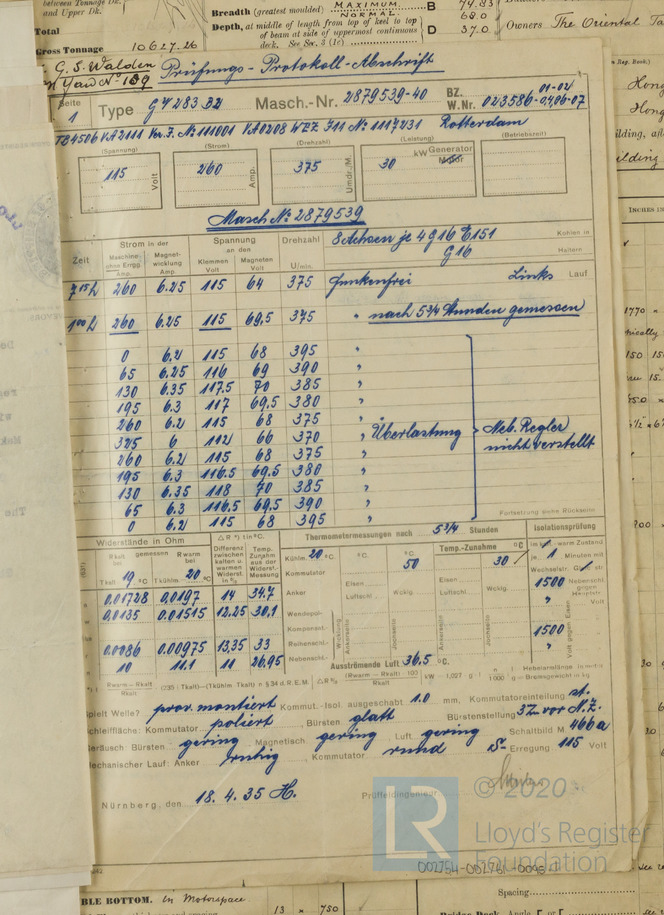 between Tonnage Dk.
and Upper Dk.
Total
Gross Tonnage 10627.26
Breadth (greatest moulded) MAXIMUM. B 74.83
NORMAL. 68.0
Depth, at middle of length from top of keel to top
of beam at side of uppermost continuous D 37.0
deck. See Sec. 3 (1c)
Owners The Oriental
G. S. Walden
Yard No 139 Prüfungs-Protokoll-Abschrift
Seite 1 Type GV 283 B2 Masch.-Nr. 2879539-40 BZ. W.Nr. 01-02 023586-0406-07
Rotterdam
(Spannung) (Strom) (Drehzahl) (Leistung) (Betriebszeit)
115 Volt 260 Amp. 375 Umdr./M. 30 kW Generator Motor
Masch No 2879539
Zeit Strom in der Spannung an den Drehzahl 8 Achsen je 4 G 16 E151 Kohlen in
Maschine ohne Erreg. Amp. Magnet-wicklung Amp. Klemmen Volt Magneten Volt U/min. G 16 Haltern
7 15 h 260 6.25 115 64 375 funkenfrei Links Lauf
1 00 h 260 6.25 115 69,5 375 " nach 5 3/4 Stunden gemessen
0 6.2 115 68 395 "
65 6.25 116 69 390 "
130 6.35 117.5 70 385 "
195 6.3 117 69,5 380 "
260 6.2 115 68 375 "
325 6 112 66 370 " Überlastung Neb. Regler
nicht verstellt
260 6.2 115 68 375 "
195 6.3 116.5 69.5 380 "
130 6.35 118 70 385 "
65 6.3 116,5 69,5 390 "
0 6.2 115 68 395 "
Fortsetzung siehe Rückseite
Widerstände in Ohm △ R *) t in °C. Thermometermessungen nach 5 3/4 Stunden Isolationsprüfung
Rkalt gemessen Rwarm bei bei Differenz zwischen kalten u. warmen Widerst. in % Temp. Zunahme aus der Widerst.-Messung Kühlm. 20 °C. °C. 50 Temp.-Zunahme °C 30 im warm Zustand
1 Minuten mit
Tkalt 19 °C Tkühlm. 20 °C Kommutator Wechselstr.
Anker Eisen Luftschl. Wcklg. Eisen Luftschl. Wcklg. 1500 Nebenschl. gegen Hauptstr.
0,01728 0,0197 14 34.7 " Volt
0,0135 0.01515 12.25 30,1 Wendepol-
Kompenst.- 1500
0,0086 0,00975 13,35 33 Reihenschl.- "
10 11.1 11 26,95 Nebenschl.- Volt gegen Eisen
Wicklung Ankerseite Jochseite Ankerseite Jochseite
Ausströmende Luft 36.5 °C.
Spielt Welle? prov. montiert Kommut.-Isol. ausgeschabt 1.0 mm, Kommutatoreinteilung st.
Schleiffläche: Kommutator poliert, Bürsten glatt Bürstenstellung 3 Z. vor N.Z.
Geräusch Bürsten gering Magnetisch gering Luft gering Schaltbild M 466 a
Mechanischer Lauf: Anker ruhig, Kommutator rund S- Erregung 115 Volt
Nürnberg, den 18. 4. 35 H. Prüffeldingenieur
© 2020
LR
Lloyd's Register
Foundation
002754-002761-0095-L
BLE BOTTOM. In Motorspace
13 × 750
Spacing
INCHES IN